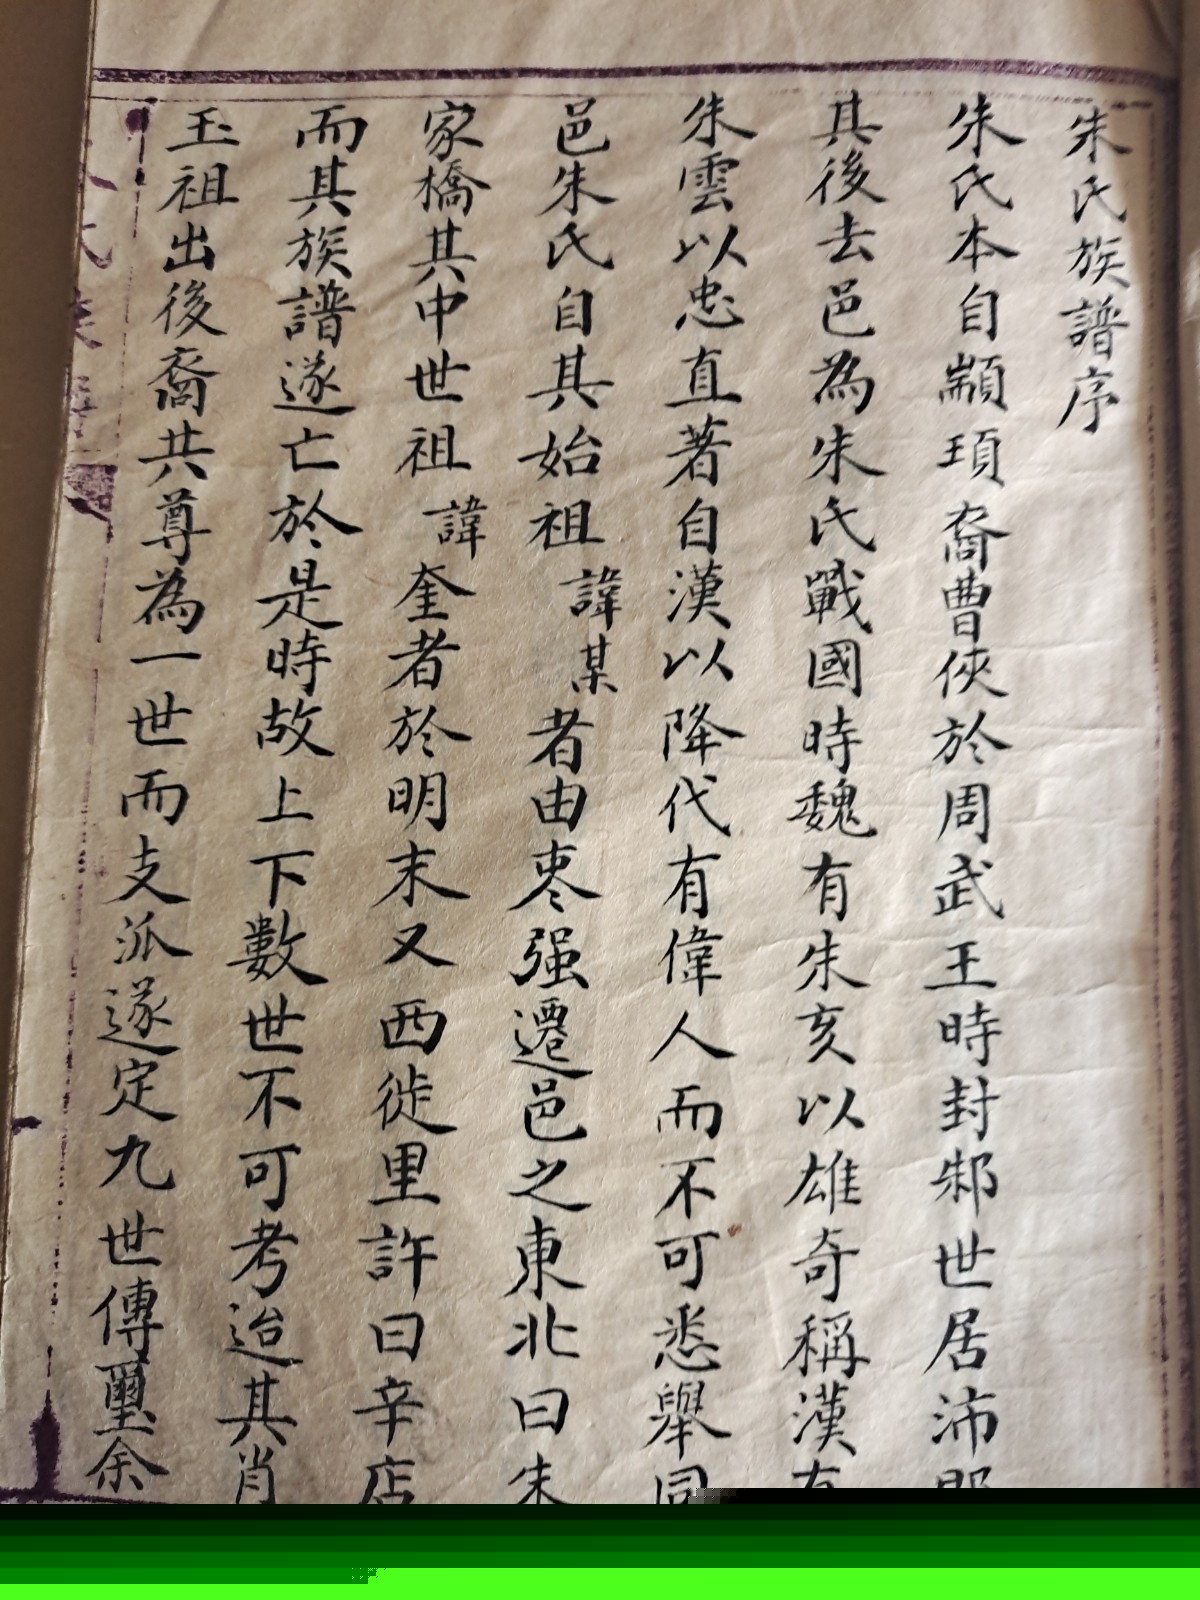 朱氏族譜序
朱氏本自顓頊裔曹俠於周武王時封邾世居沛
其後去邑為朱氏戰國時魏有朱亥以雄奇稱漢有
朱雲以忠直著自漢以降代有偉人而不可悉舉同
邑朱氏自其始祖諱某者由枣强遷邑之東北曰朱
家橋其中世祖諱奎者於明末又西徙里許曰辛店
而其族譜遂亡於是時故上下數世不可考迨其肖
玉祖出後裔共尊為一世而支派遂定九世傳璽余
氏族譜